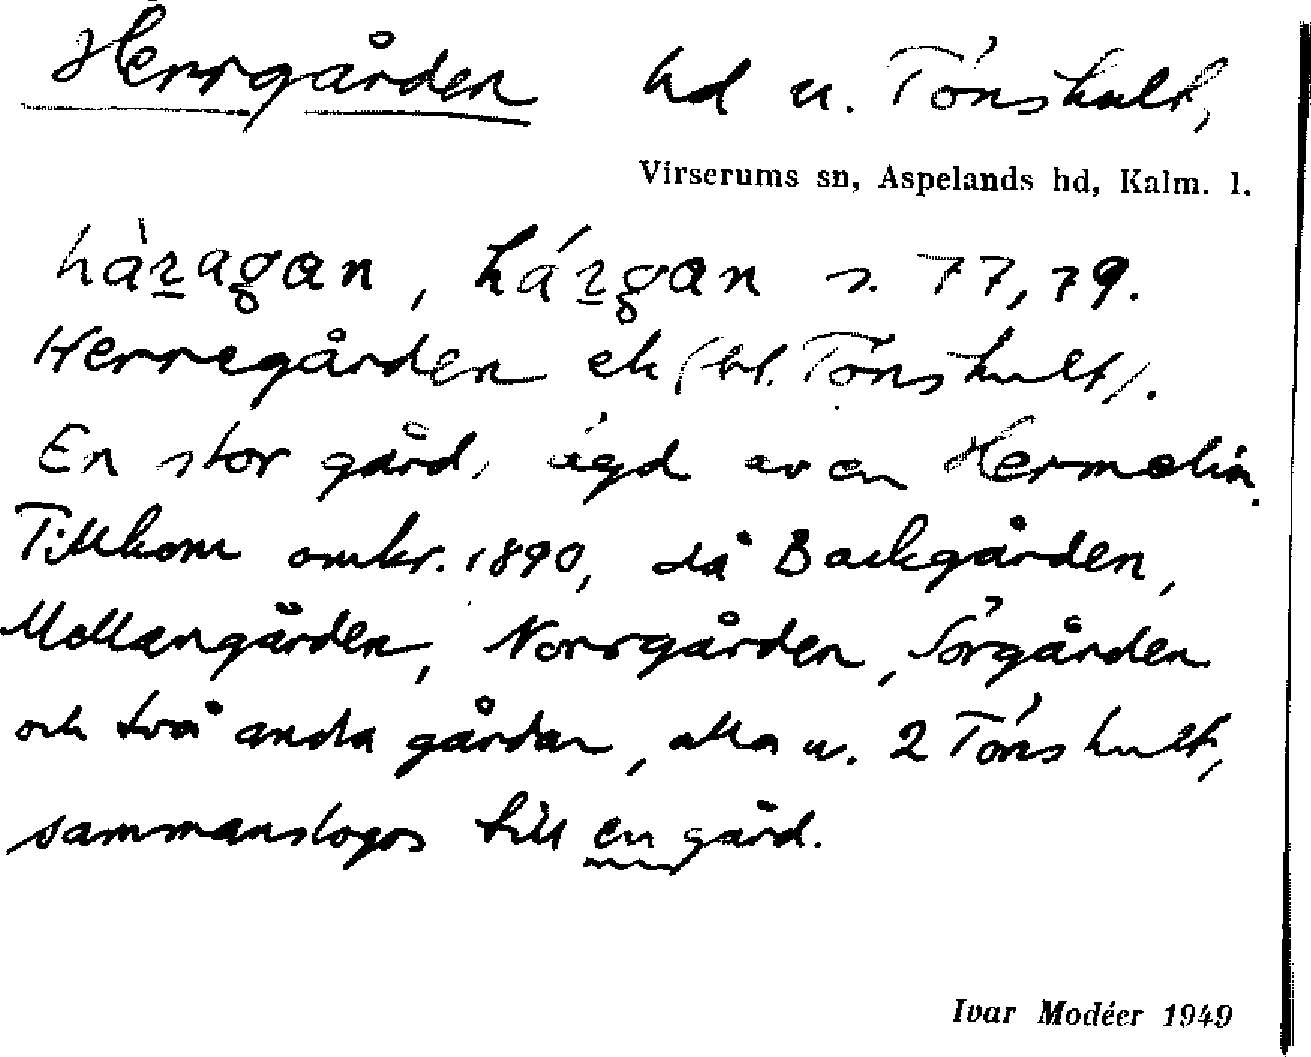 Herrgården hd u. Tönshult,
Virserums sn, Aspelands hd, Kalm. l.
hàꞧagan, háꞧgan s. 77, 79.
Herregården ek (bl. Tönshult).
En stor gård, ägd av en Hermelin.
Tillkom omkr. 1890, då Backgården,
Mellangården, Norrgården, Sörgården
och två andra gårdar, alla u. 2 Tönshult,
sammanslogos till en gård.
Ivar Modéer 1949